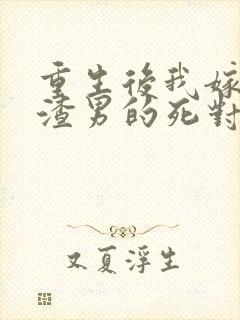 重生後我嫁
渣男的死對
又夏浮生